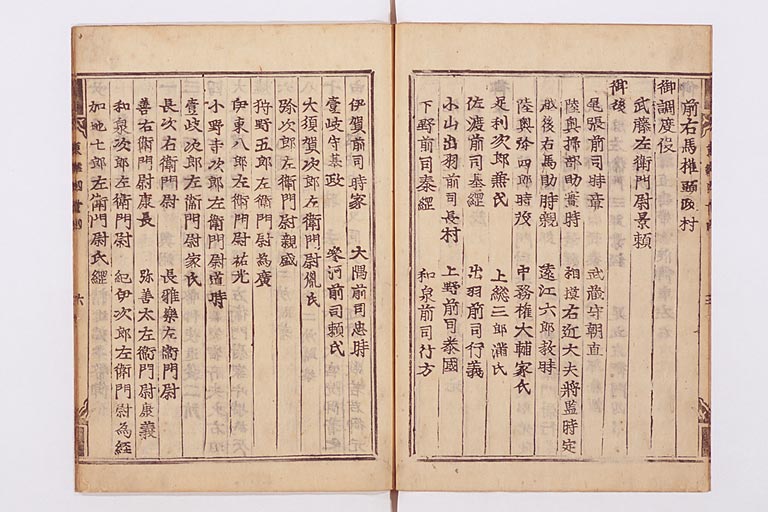 前右馬権頭政村
御調度役
武藤左衛門尉景頼
御後
尾張前司時章　武蔵守朝直
陸奥掃部助實時　相摸右近大夫將監時定
越後右馬助時親　遠江六郎教時
陸奥弥四郎時茂　中務権大輔家氏
足利次郎兼氏　上総三郎満氏
佐渡前司基綱　出羽前司行義
小山出羽前司長村　上野前司泰國
下野前司泰綱　和泉前司行方
伊賀前司時家　大隅前司忠時
壹岐守基政　参河前司頼氏
大須賀次郎左衛門尉胤氏
弥次郎左衛門尉親盛
狩野五郎左衛門尉為廣
伊東八郎左衛門尉祐光
小野寺次郎左衛門尉道時
壹岐次郎左衛門尉家氏
長次右衛門尉　長雅樂左衛門尉
善右衛門尉康長　弥善太左衛門尉康義
和泉次郎左衛門尉　紀伊次郎左衛門尉為経
加地七郎左衛門尉氏綱
六